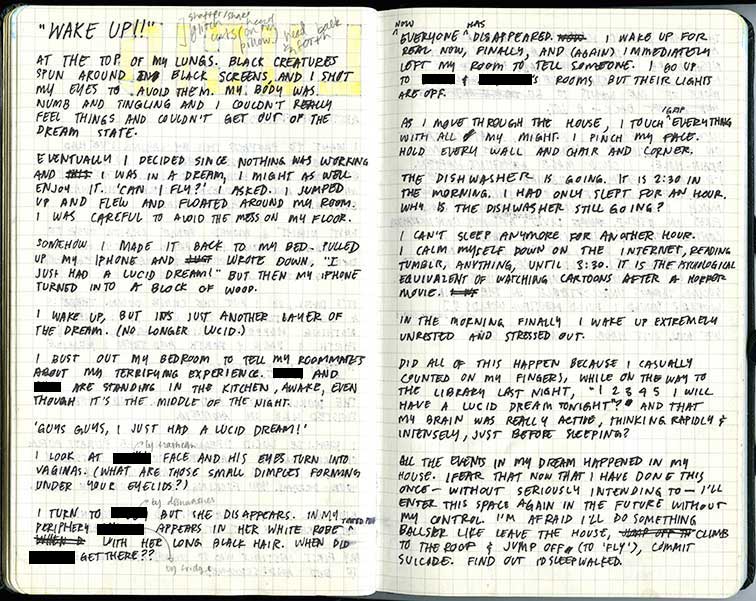 "WAKE UP!!"
shatter/shake
glitch head
cuts (on my
pillow) need back
& forth
AT THE TOP OF MY LUNGS. BLACK CREATURES
SPUN AROUND BLACK SCREENS, AND I SHUT
MY EYES TO AVOID THEM. MY BODY WAS
NUMB AND TINGLING AND I COULDN'T REALLY
FEEL THINGS AND COULDN'T GET OUT OF THE
DREAM STATE.
EVENTUALLY I DECIDED SINCE NOTHING WAS WORKING
AND THIS I WAS IN A DREAM, I MIGHT AS WELL
ENJOY IT. 'CAN I FLY?' I ASKED. I JUMPED
UP AND FLEW AND FLOATED AROUND MY ROOM.
I WAS CAREFUL TO AVOID THE MESS ON MY FLOOR.
SOMEHOW I MADE IT BACK TO MY BED. PULLED
UP MY IPHONE AND JUST WROTE DOWN, "I
JUST HAD A LUCID DREAM!" BUT THEN MY IPHONE
TURNED INTO A BLOCK OF WOOD.
I WAKE UP, BUT IT'S JUST ANOTHER LAYER OF
THE DREAM. (NO LONGER LUCID.)
I BUST OUT MY BEDROOM TO TELL MY ROOMMATES
ABOUT MY TERRIFYING EXPERIENCE. AND
ARE STANDING IN THE KITCHEN, AWAKE, EVEN
THOUGH IT'S THE MIDDLE OF THE NIGHT.
'GUYS GUYS, I JUST HAD A LUCID DREAM!'
by trashcan
I LOOK AT FACE AND HIS EYES TURN INTO
VAGINAS. (WHAT ARE THOSE SMALL DIMPLES FORMING
UNDER YOUR EYELIDS?)
by dishwasher
I TURN TO BUT SHE DISAPPEARS. IN MY
PERIPHERY APPEARS IN HER WHITE ROBE
WHEN D WITH HER LONG BLACK HAIR. WHEN DID
GET THERE??
by fridge
NOW HAS
EVERYONE DISAPPEARED. NOW. I WAKE UP FOR
REAL NOW, FINALLY, AND (AGAIN) IMMEDIATELY
LEFT MY ROOM TO TELL SOMEONE. I GO UP
TO & 'S ROOMS BUT THEIR LIGHTS
ARE OFF.
/GRIP
AS I MOVE THROUGH THE HOUSE, I TOUCH EVERYTHING
WITH ALL OF MY MIGHT. I PINCH MY FACE.
HOLD EVERY WALL AND CHAIR AND CORNER.
THE DISHWASHER IS GOING. IT IS 2:30 IN
THE MORNING. I HAD ONLY SLEPT FOR AN HOUR.
WHY IS THE DISHWASHER STILL GOING?
I CAN'T SLEEP ANYMORE FOR ANOTHER HOUR.
I CALM MYSELF DOWN ON THE INTERNET, READING
TUMBLR, ANYTHING, UNTIL 3:30. IT IS THE PSYCHOLOGICAL
EQUIVALENT OF WATCHING CARTOONS AFTER A HORROR
MOVIE.
IN THE MORNING FINALLY I WAKE UP EXTREMELY
UNRESTED AND STRESSED OUT.
DID ALL OF THIS HAPPEN BECAUSE I CASUALLY
COUNTED ON MY FINGERS, WHILE ON THE WAY TO
THE LIBRARY LAST NIGHT, "1 2 3 4 5 I WILL
HAVE A LUCID DREAM TONIGHT"? AND THAT
MY BRAIN WAS REALLY ACTIVE, THINKING RAPIDLY &
INTENSELY, JUST BEFORE SLEEPING?
ALL THE EVENTS IN MY DREAM HAPPENED IN MY
HOUSE. I FEAR THAT NOW THAT I HAVE DONE THIS
ONCE - WITHOUT SERIOUSLY INTENDING TO - I'LL
ENTER THIS SPACE AGAIN IN THE FUTURE WITHOUT
MY CONTROL. I'M AFRAID I'LL DO SOMETHING
BALLSIER LIKE LEAVE THE HOUSE, JUMP OFF CLIMB
TO THE ROOF & JUMP OFF (TO 'FLY'), COMMIT
SUICIDE. FIND OUT I'D SLEEPWALKED.